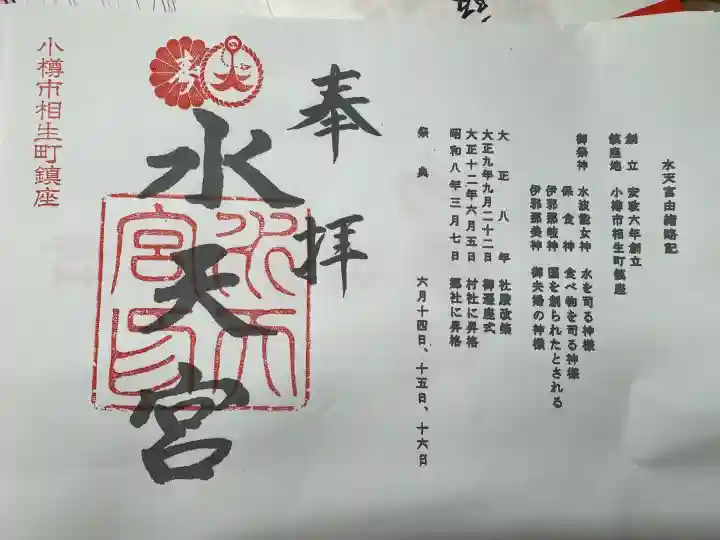 水天宮由緒略記
創立　安政六年創立
鎮座地　小樽市相生町鎮座
御祭神　水波能女神　水を司る神様
保食神　食べ物を司る神様
伊邪那岐神　国を創られたとされる
伊邪那美神　御夫婦の神様
大正八年　社殿改築
大正九年九月二十二日　御遷座式
大正十二年六月五日　村社に昇格
昭和八年三月七日　郷社に昇格
祭典　六月十四日、十五日、十六日
奉拝
水天宮
水天宮印
小樽市相生町鎮座